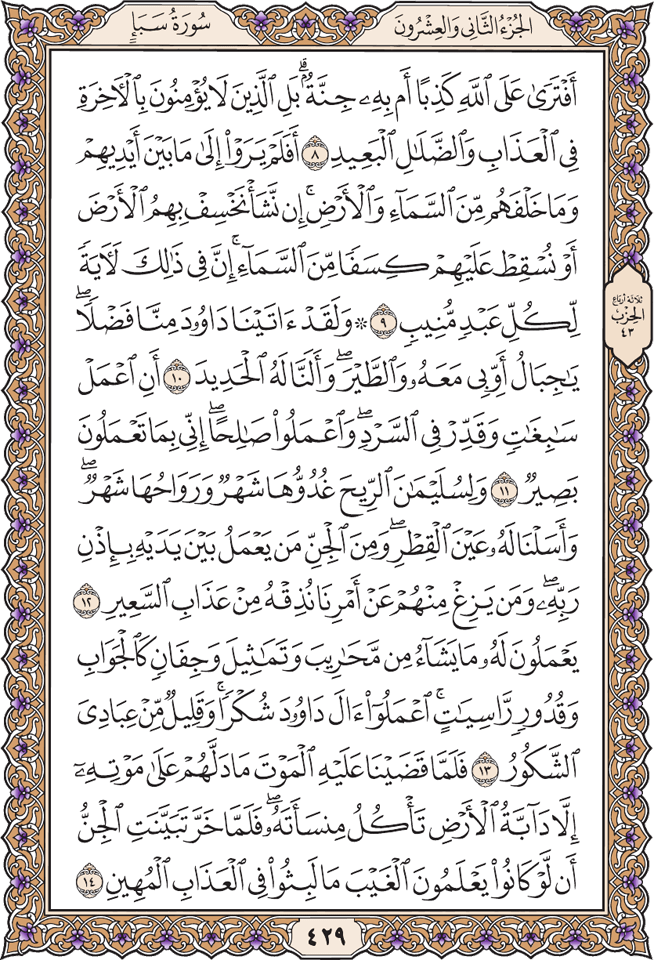 الجُزْءُ الثَّانِي وَالْعِشْرُونَ
سُورَةُ سَبَإٍ
أَفْتَرَىٰ عَلَى ٱللَّهِ كَذِبًا أَم بِهِۦ جِنَّةٌۢۗ بَلِ ٱلَّذِينَ لَا يُؤْمِنُونَ بِٱلْـَٔاخِرَةِ
فِى ٱلْعَذَابِ وَٱلضَّلَـٰلِ ٱلْبَعِيدِ ٨ أَفَلَمْ يَرَوْا۟ إِلَىٰ مَا بَيْنَ أَيْدِيهِمْ
وَمَا خَلْفَهُم مِّنَ ٱلسَّمَآءِ وَٱلْأَرْضِۚ إِن نَّشَأْ نَخْسِفْ بِهِمُ ٱلْأَرْضَ
أَوْ نُسْقِطْ عَلَيْهِمْ كِسَفًا مِّنَ ٱلسَّمَآءِۚ إِنَّ فِى ذَٰلِكَ لَـَٔايَةً
لِّكُلِّ عَبْدٍ مُّنِيبٍ ٩ ۞ وَلَقَدْ ءَاتَيْنَا دَاوُۥدَ مِنَّا فَضْلًاۖ
يَـٰجِبَالُ أَوِّبِى مَعَهُۥ وَٱلطَّيْرَۖ وَأَلَنَّا لَهُ ٱلْحَدِيدَ ١٠ أَنِ ٱعْمَلْ
سَـٰبِغَـٰتٍ وَقَدِّرْ فِى ٱلسَّرْدِۖ وَٱعْمَلُوا۟ صَـٰلِحًاۖ إِنِّى بِمَا تَعْمَلُونَ
بَصِيرٌ ١١ وَلِسُلَيْمَـٰنَ ٱلرِّيحَ غُدُوُّهَا شَهْرٌ وَرَوَاحُهَا شَهْرٌۖ
وَأَسَلْنَا لَهُۥ عَيْنَ ٱلْقِطْرِۖ وَمِنَ ٱلْجِنِّ مَن يَعْمَلُ بَيْنَ يَدَيْهِ بِإِذْنِ
رَبِّهِۦۖ وَمَن يَزِغْ مِنْهُمْ عَنْ أَمْرِنَا نُذِقْهُ مِنْ عَذَابِ ٱلسَّعِيرِ ١٢
يَعْمَلُونَ لَهُۥ مَا يَشَآءُ مِن مَّحَـٰرِيبَ وَتَمَـٰثِيلَ وَجِفَانٍ كَٱلْجَوَابِ
وَقُدُورٍ رَّاسِيَـٰتٍۚ ٱعْمَلُوٓا۟ ءَالَ دَاوُۥدَ شُكْرًاۚ وَقَلِيلٌ مِّنْ عِبَادِىَ
ٱلشَّكُورُ ١٣ فَلَمَّا قَضَيْنَا عَلَيْهِ ٱلْمَوْتَ مَا دَلَّهُمْ عَلَىٰ مَوْتِهِۦٓ
إِلَّا دَآبَّةُ ٱلْأَرْضِ تَأْكُلُ مِنسَأَتَهُۥۖ فَلَمَّا خَرَّ تَبَيَّنَتِ ٱلْجِنُّ
أَن لَّوْ كَانُوا۟ يَعْلَمُونَ ٱلْغَيْبَ مَا لَبِثُوا۟ فِى ٱلْعَذَابِ ٱلْمُهِينِ ١٤
ثلاثة أرباع
الحزب
٤٣
٤٢٩